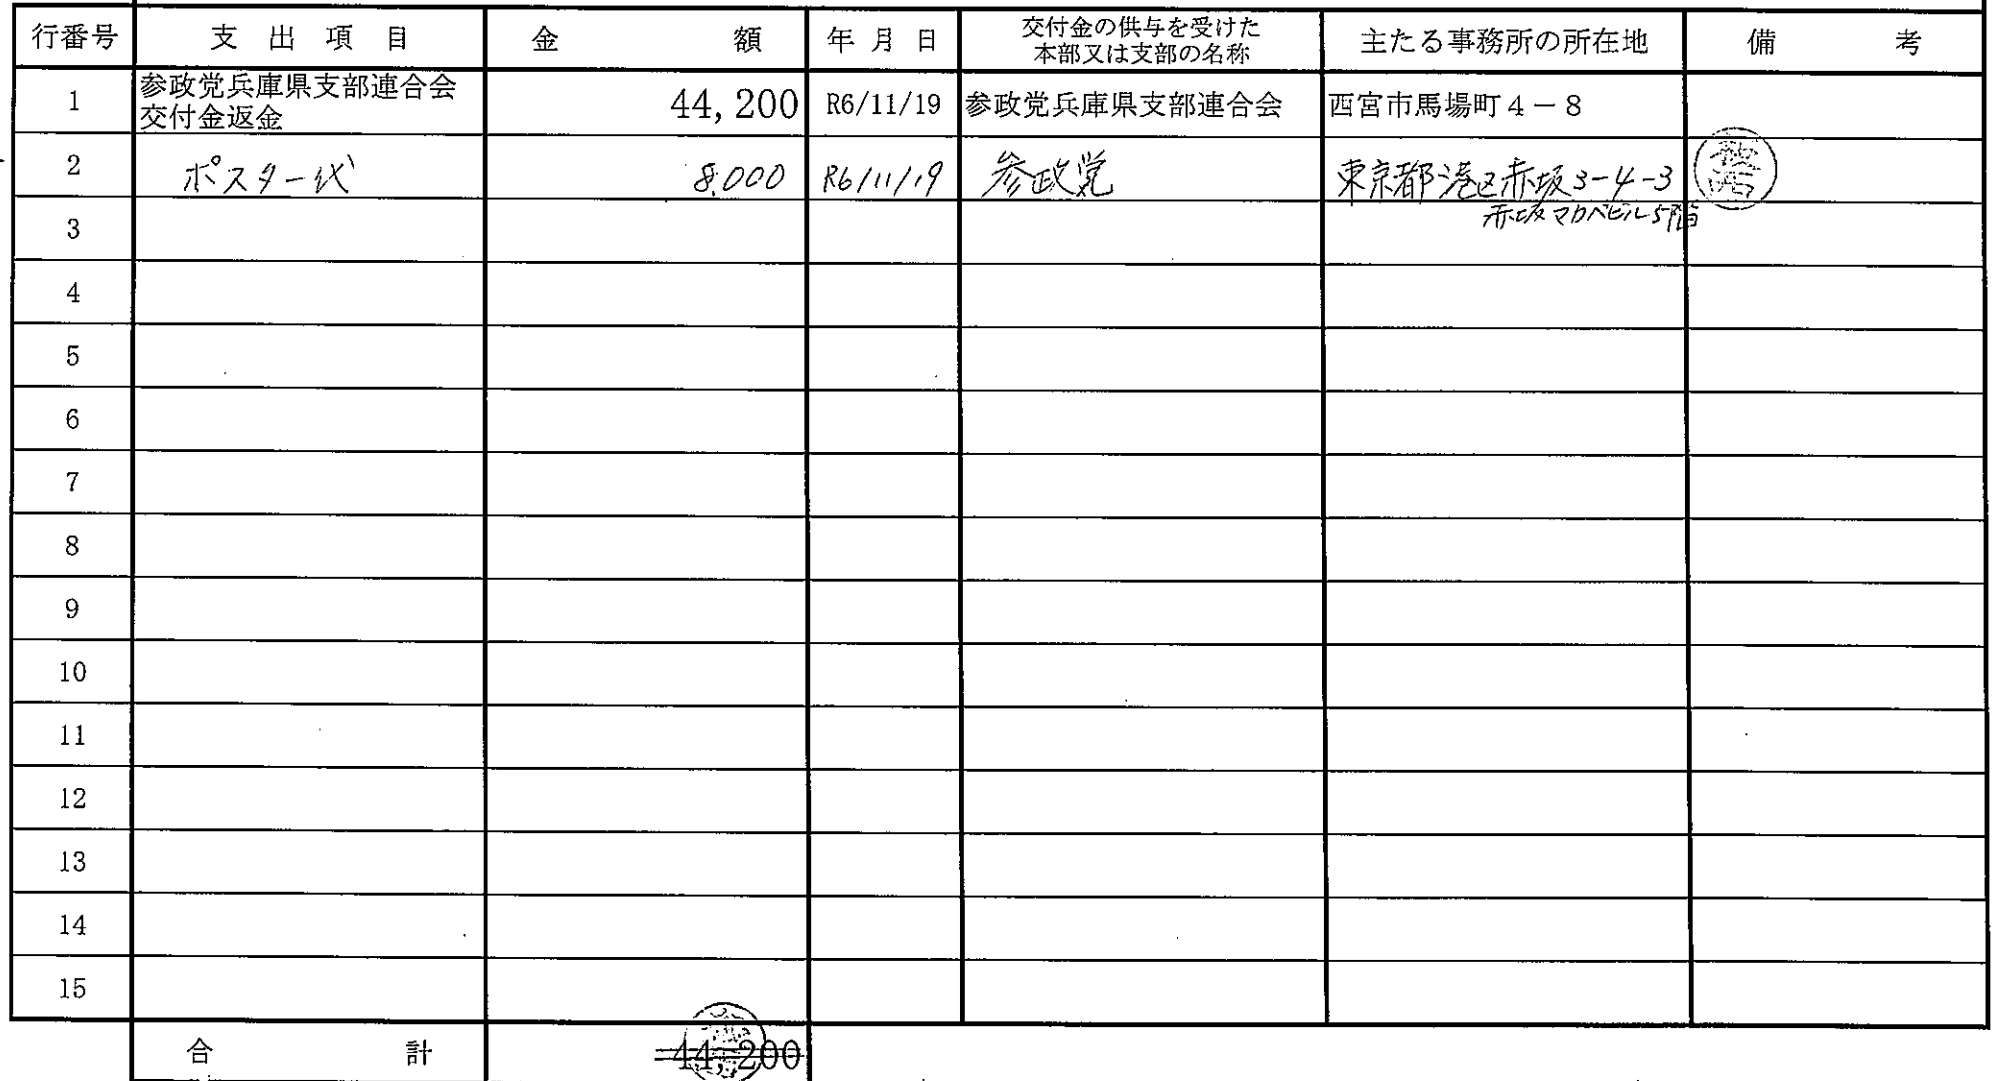 行番号 支出項目 金額 年月日 交付金の供与を受けた本部又は支部の名称 主たる事務所の所在地 備考
1 参政党兵庫県支部連合会 44,200 R6/11/19 参政党兵庫県支部連合会 西宮市馬場町4－8
交付金返金
2 ポスター代 8,000 R6/11/19 参政党 東京都港区赤坂3-4-3
赤坂マカベビル5階
3
4
5
6
7
8
9
10
11
12
13
14
15
合計 44,200